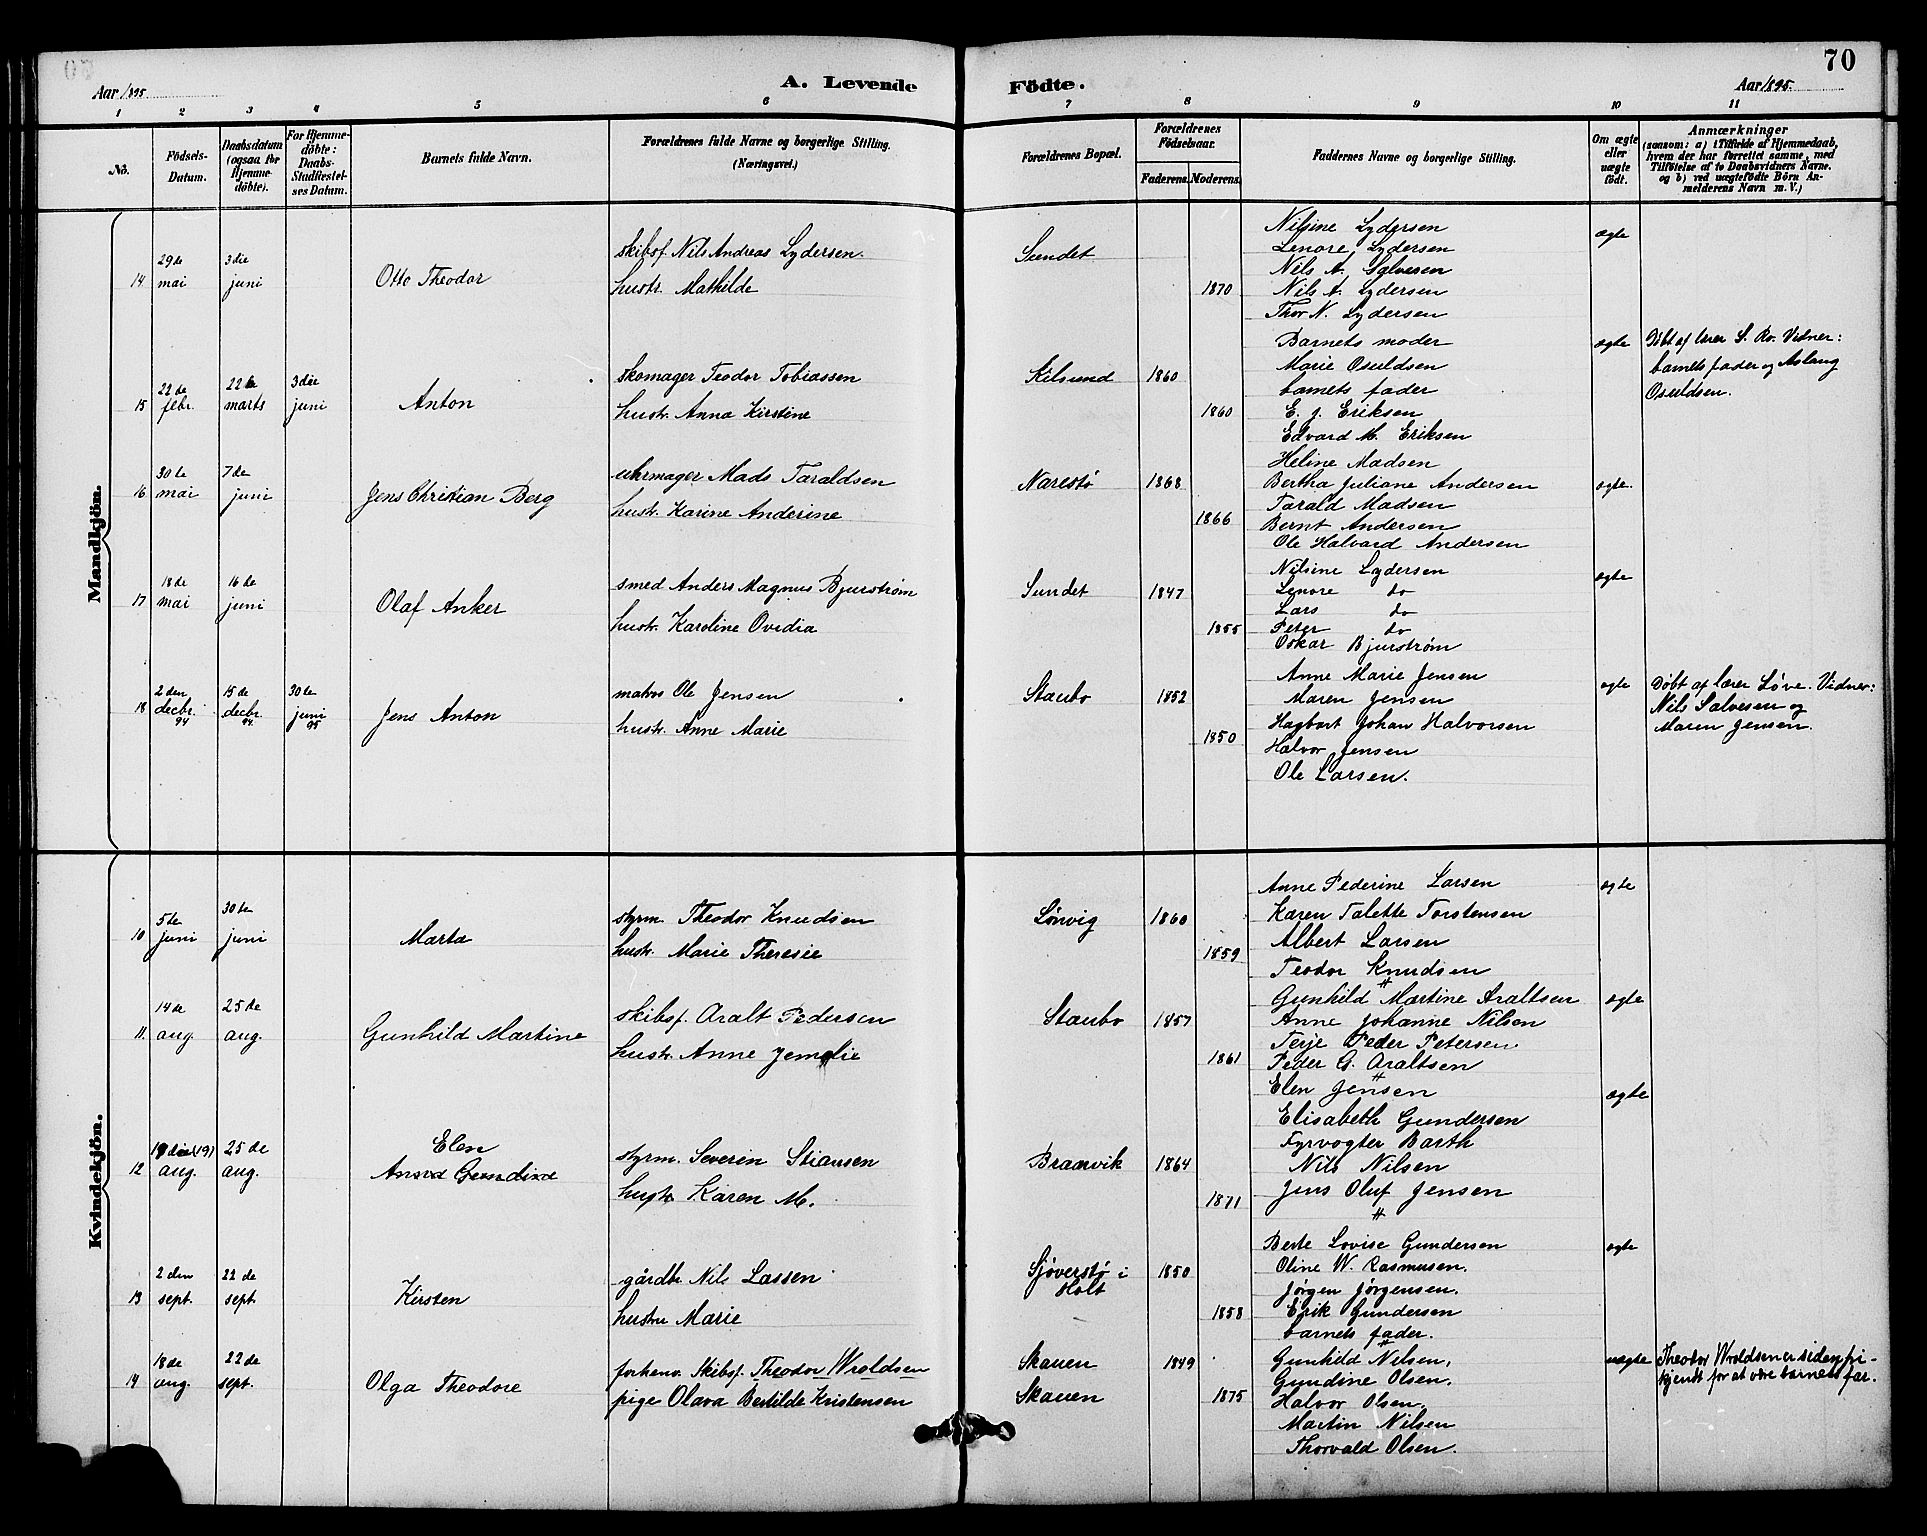 70
Aar 1895.
A. Levende
Födte.
Aar 1895.
1 2 3 4 5 6 7 8 9 10 11
No.
Födsels-Datum.
Daabsdatum (ogsaa for Hjemme-döbte).
For Hjemme-döbte: Daabs-Stadfæstel-ses Datum.
Barnets fulde Navn.
Forældrenes fulde Navne og borgerlige Stilling. (Næringsvei.)
Forældrenes Bopæl.
Forældrenes Födselsaar.
Faderens. Moderens.
Faddernes Navne og borgerlige Stilling.
Om ægte eller uægte födt.
Anmærkninger
(saasom: a) i Tilfælde af Hjemmedaab, hvem der har forrettet samme, med Tilföielse af to Daabsvidners Navne. og b) ved uægtefödte Börn Anmelderens Navn m. V.)
Mandkjön.
14 29de mai 3die juni Otto Theodor
skibsf. Nils Andreas Lydersen.
hustr. Mathilde
Sundet
1870
Nilsine Lydersen
Lenore Lydersen
Nils A. Salvesen
Nils A. Lydersen
Thor N. Lydersen
ægte
15 22de febr. 22de marts 3die juni Anton
skomager Teodor Tobiassen
hustr. Anna Kirstine
Kilsund 1860
1860
Barnets moder
Marie Osuldsen
barnets fader
E. J. Eriksen
Edvard M. Eriksen
ægte
Döbt af lærer S. Ro. Vidner:
barnets fader og Aslaug
Osuldsen.
16 30te mai 7de juni Jens Christian Berg
uhrmager Mads Taraldsen
hustr. Karine Anderine
Narestø 1868
1866
Heline Madsen
Bertha Juliane Andersen
Tarald Madsen
Bernt Andersen
Ole Halvard Andersen
ægte.
17 18de mai 16de juni Olaf Anker
smed Anders Magnus Bjurstrøm
hustr. Karoline Ovidia
Sundet 1847
1855
Nilsine Lydersen
Lenore do
Lars do
Peter do
Oskar Bjurstrøm
ægte
18 2den decbr. 94 15de decbr. 94. 30te juni 95 Jens Anton
matros Ole Jensen
hustr. Anne Marie
Staubo 1852
1850
Anne Marie Jensen
Maren Jensen
Hagbart Johan Halvorsen
Halvor Jensen
Ole Larsen.
ægte
Döbt af lærer Løve. Vidner:
Nils Salvesen og
Maren Jensen.
Kvindekjön.
10 5te juni 30te juni Marta
styrm. Theodor Knudsen
hustr. Marie Theresie
Lørvig 1860
1859
Anne Pederine Larsen
Karen Talette Torstensen
Albert Larsen
Teodor Knudsen
ægte
11. 14de aug. 25de aug. Gunhild Martine
skibsf. Aralt Pedersen
hustr. Anne Jemelie
Staubo 1857
1861
Gunhild Martine Araltsen
Anne Johanne Nilsen
Terje Peder Petersen
Peder G. Araltsen
ægte
12 (19) aug. 25de aug. Elen
Gundine
styrm. Severin Stiansen
hustr. Karen M.
Braarvik 1864
1871
Elen Jensen
Elisabeth Gundersen
Fyrvogter Barth
Nils Nilsen
Jens Oluf Jensen
ægte
13 2den sept. 22de sept. Kirsten
gårdbr. Nils Lassen
hustru Marie
Sjøverstø i
Holt
1850
1858
Berte Lovise Gundersen
Oline W. Rasmusen.
Jørgen Jørgensen.
Erik Gundersen
barnets fader.
ægte
14 18de aug. 22de sept. Olga Theodore
forhenv. Skibsf. Theodor Wroldsen
pige Olava Bertilde Kristensen
Skauen 1849
Skauen 1875
Gunhild Nilsen,
Gundine Olsen.
Halvor Olsen.
Martin Nilsen
Thorvald Olsen.
uægte
Theodor Wroldsen er siden fri-
kjendt for at være barnets far.